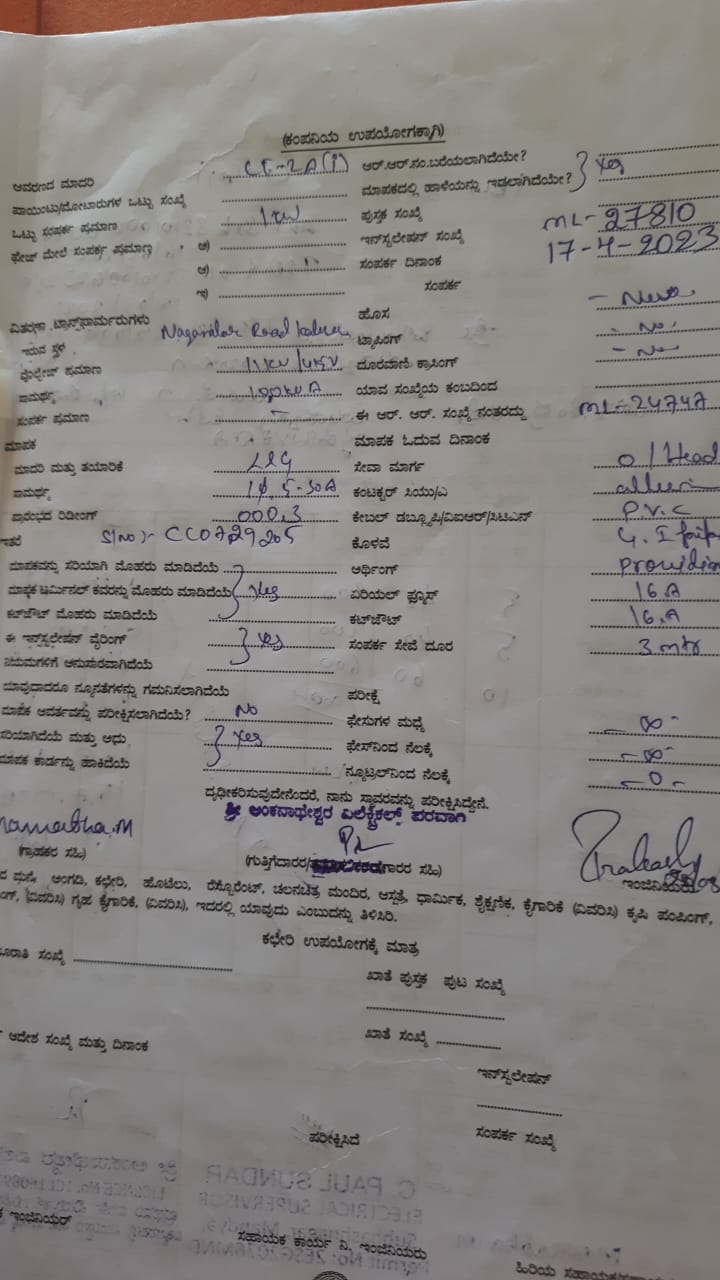 (ಕಂಪನಿಯ ಉಪಯೋಗಕ್ಕಾಗಿ)
ಆವರಣದ ಮಾದರಿ ಆರ್.ಆರ್.ನಂ.ಬರೆಯಲಾಗಿದೆಯೇ? Yes
ಪಾಯಿಂಟು/ಮೋಟಾರುಗಳ ಒಟ್ಟು ಸಂಖ್ಯೆ ಮಾಪಕದಲ್ಲಿ ಹಾಳೆಯನ್ನು ಇಡಲಾಗಿದೆಯೇ?
ಒಟ್ಟು ಸಂಪರ್ಕ ಪ್ರಮಾಣ 1kW ಪುಸ್ತಕ ಸಂಖ್ಯೆ
ಫೇಜ್ ಮೇಲೆ ಸಂಪರ್ಕ ಪ್ರಮಾಣ ಅ) ಇನ್‌ಸ್ಟಲೇಷನ್ ಸಂಖ್ಯೆ ML-27810
ಆ) ಸಂಪರ್ಕ ದಿನಾಂಕ 17-4-2023
ಇ) ಸಂಪರ್ಕ
ವಿತರಣಾ ಟ್ರಾನ್ಸ್‌ಫಾರ್ಮರುಗಳು ಹೊಸ - New
ಇರುವ ಸ್ಥಳ Road ಟ್ಯಾಪಿಂಗ್ - No.
ವೋಲ್ಟೇಜ್ ಪ್ರಮಾಣ ದೂರವಾಣಿ ಕ್ರಾಸಿಂಗ್ - No
ಸಾಮರ್ಥ್ಯ 100kVA ಯಾವ ಸಂಖ್ಯೆಯ ಕಂಬದಿಂದ
ಸಂಪರ್ಕ ಪ್ರಮಾಣ - ಈ ಆರ್. ಆರ್. ಸಂಖ್ಯೆ ನಂತರದ್ದು ML-24747
ಮಾಪಕ ಮಾಪಕ ಓದುವ ದಿನಾಂಕ
ಮಾದರಿ ಮತ್ತು ತಯಾರಿಕೆ L&G ಸೇವಾ ಮಾರ್ಗ O/Head
ಸಾಮರ್ಥ್ಯ 1ϕ, 5-30A ಕಂಟಕ್ಟರ್ ಸಿಯು/ಎ
ಪ್ರಾರಂಭದ ರಿಡೀಂಗ್ 000.3 ಕೇಬಲ್ ಡಬ್ಲ್ಯೂಪಿ/ವಿಐಆರ್/ಸಿಟಿಎಸ್ P.V.C
ಇತರೆ Sl No:- CC0729205 ಕೊಳವೆ G.I pipe
ಮಾಪಕವನ್ನು ಸರಿಯಾಗಿ ಮೊಹರು ಮಾಡಿದೆಯೆ ಆರ್ಥಿಂಗ್
ಮಾಪಕ ಟರ್ಮಿನಲ್ ಕವರನ್ನು ಮೊಹರು ಮಾಡಿದೆಯೆ Yes ಏರಿಯಲ್ ಫ್ಯೂಸ್ 16A
ಕಟ್‌ಔಟ್ ಮೊಹರು ಮಾಡಿದೆಯೆ ಕಟ್‌ಔಟ್ 16.A
ಈ ಇನ್‌ಸ್ಟಲೇಷನ್ ವೈರಿಂಗ್ Yes ಸಂಪರ್ಕ ಸೇವೆ ದೂರ 3 mtr
ನಿಯಮಗಳಿಗೆ ಅನುಸಾರವಾಗಿದೆಯೆ
ಯಾವುದಾದರೂ ನ್ಯೂನತೆಗಳನ್ನು ಗಮನಿಸಲಾಗಿದೆಯೆ ಪರೀಕ್ಷೆ
ಮಾಪಕ ಆವರ್ತವನ್ನು ಪರೀಕ್ಷಿಸಲಾಗಿದೆಯೆ? No ಫೇಸುಗಳ ಮಧ್ಯೆ ∞ -
ಸರಿಯಾಗಿದೆಯೆ ಮತ್ತು ಅಥು Yes ಫೇಸ್‌ನಿಂದ ನೆಲಕ್ಕೆ - ∞ -
ಮಾಪಕ ಕಾರ್ಡನ್ನು ಹಾಕಿದೆಯೆ ನ್ಯೂಟ್ರಲ್‌ನಿಂದ ನೆಲಕ್ಕೆ - 0 -
ದೃಢೀಕರಿಸುವುದೇನೆಂದರೆ, ನಾನು ಸ್ಥಾವರವನ್ನು ಪರೀಕ್ಷಿಸಿದ್ದೇನೆ.
ಶ್ರೀ ಅಂಕನಾಥೇಶ್ವರ ಎಲೆಕ್ಟ್ರಿಕಲ್ಸ್ ಪರವಾಗಿ
(ಗ್ರಾಹಕರ ಸಹಿ) ಇಂಜಿನಿಯರು
ದ ಮನೆ, ಅಂಗಡಿ, ಕಛೇರಿ, ಹೊಟೆಲು, ರೆಸ್ಟೋರೆಂಟ್, ಚಲನಚಿತ್ರ ಮಂದಿರ, ಆಸ್ಪತ್ರೆ, ಧಾರ್ಮಿಕ, ಶೈಕ್ಷಣಿಕ, ಕೈಗಾರಿಕೆ (ವಿವರಿಸಿ) ಕೃಷಿ ಪಂಪಿಂಗ್,
ಂಗ್, (ವಿವರಿಸಿ) ಗೃಹ ಕೈಗಾರಿಕೆ, (ವಿವರಿಸಿ), ಇದರಲ್ಲಿ ಯಾವುದು ಎಂಬುದನ್ನು ತಿಳಿಸಿರಿ.
ಕಛೇರಿ ಉಪಯೋಗಕ್ಕೆ ಮಾತ್ರ
ಸಂಖ್ಯೆ ಖಾತೆ ಪುಸ್ತಕ ಪುಟ ಸಂಖ್ಯೆ
ಆದೇಶ ಸಂಖ್ಯೆ ಮತ್ತು ದಿನಾಂಕ ಖಾತೆ ಸಂಖ್ಯೆ
ಇನ್‌ಸ್ಟಲೇಷನ್
ಪರೀಕ್ಷಿಸಿದೆ ಸಂಪರ್ಕ ಸಂಖ್ಯೆ
ಇಂಜಿನಿಯರ್ ಸಹಾಯಕ ಕಾರ್ಯ ನಿ. ಇಂಜಿನಿಯರು ಹಿರಿಯ